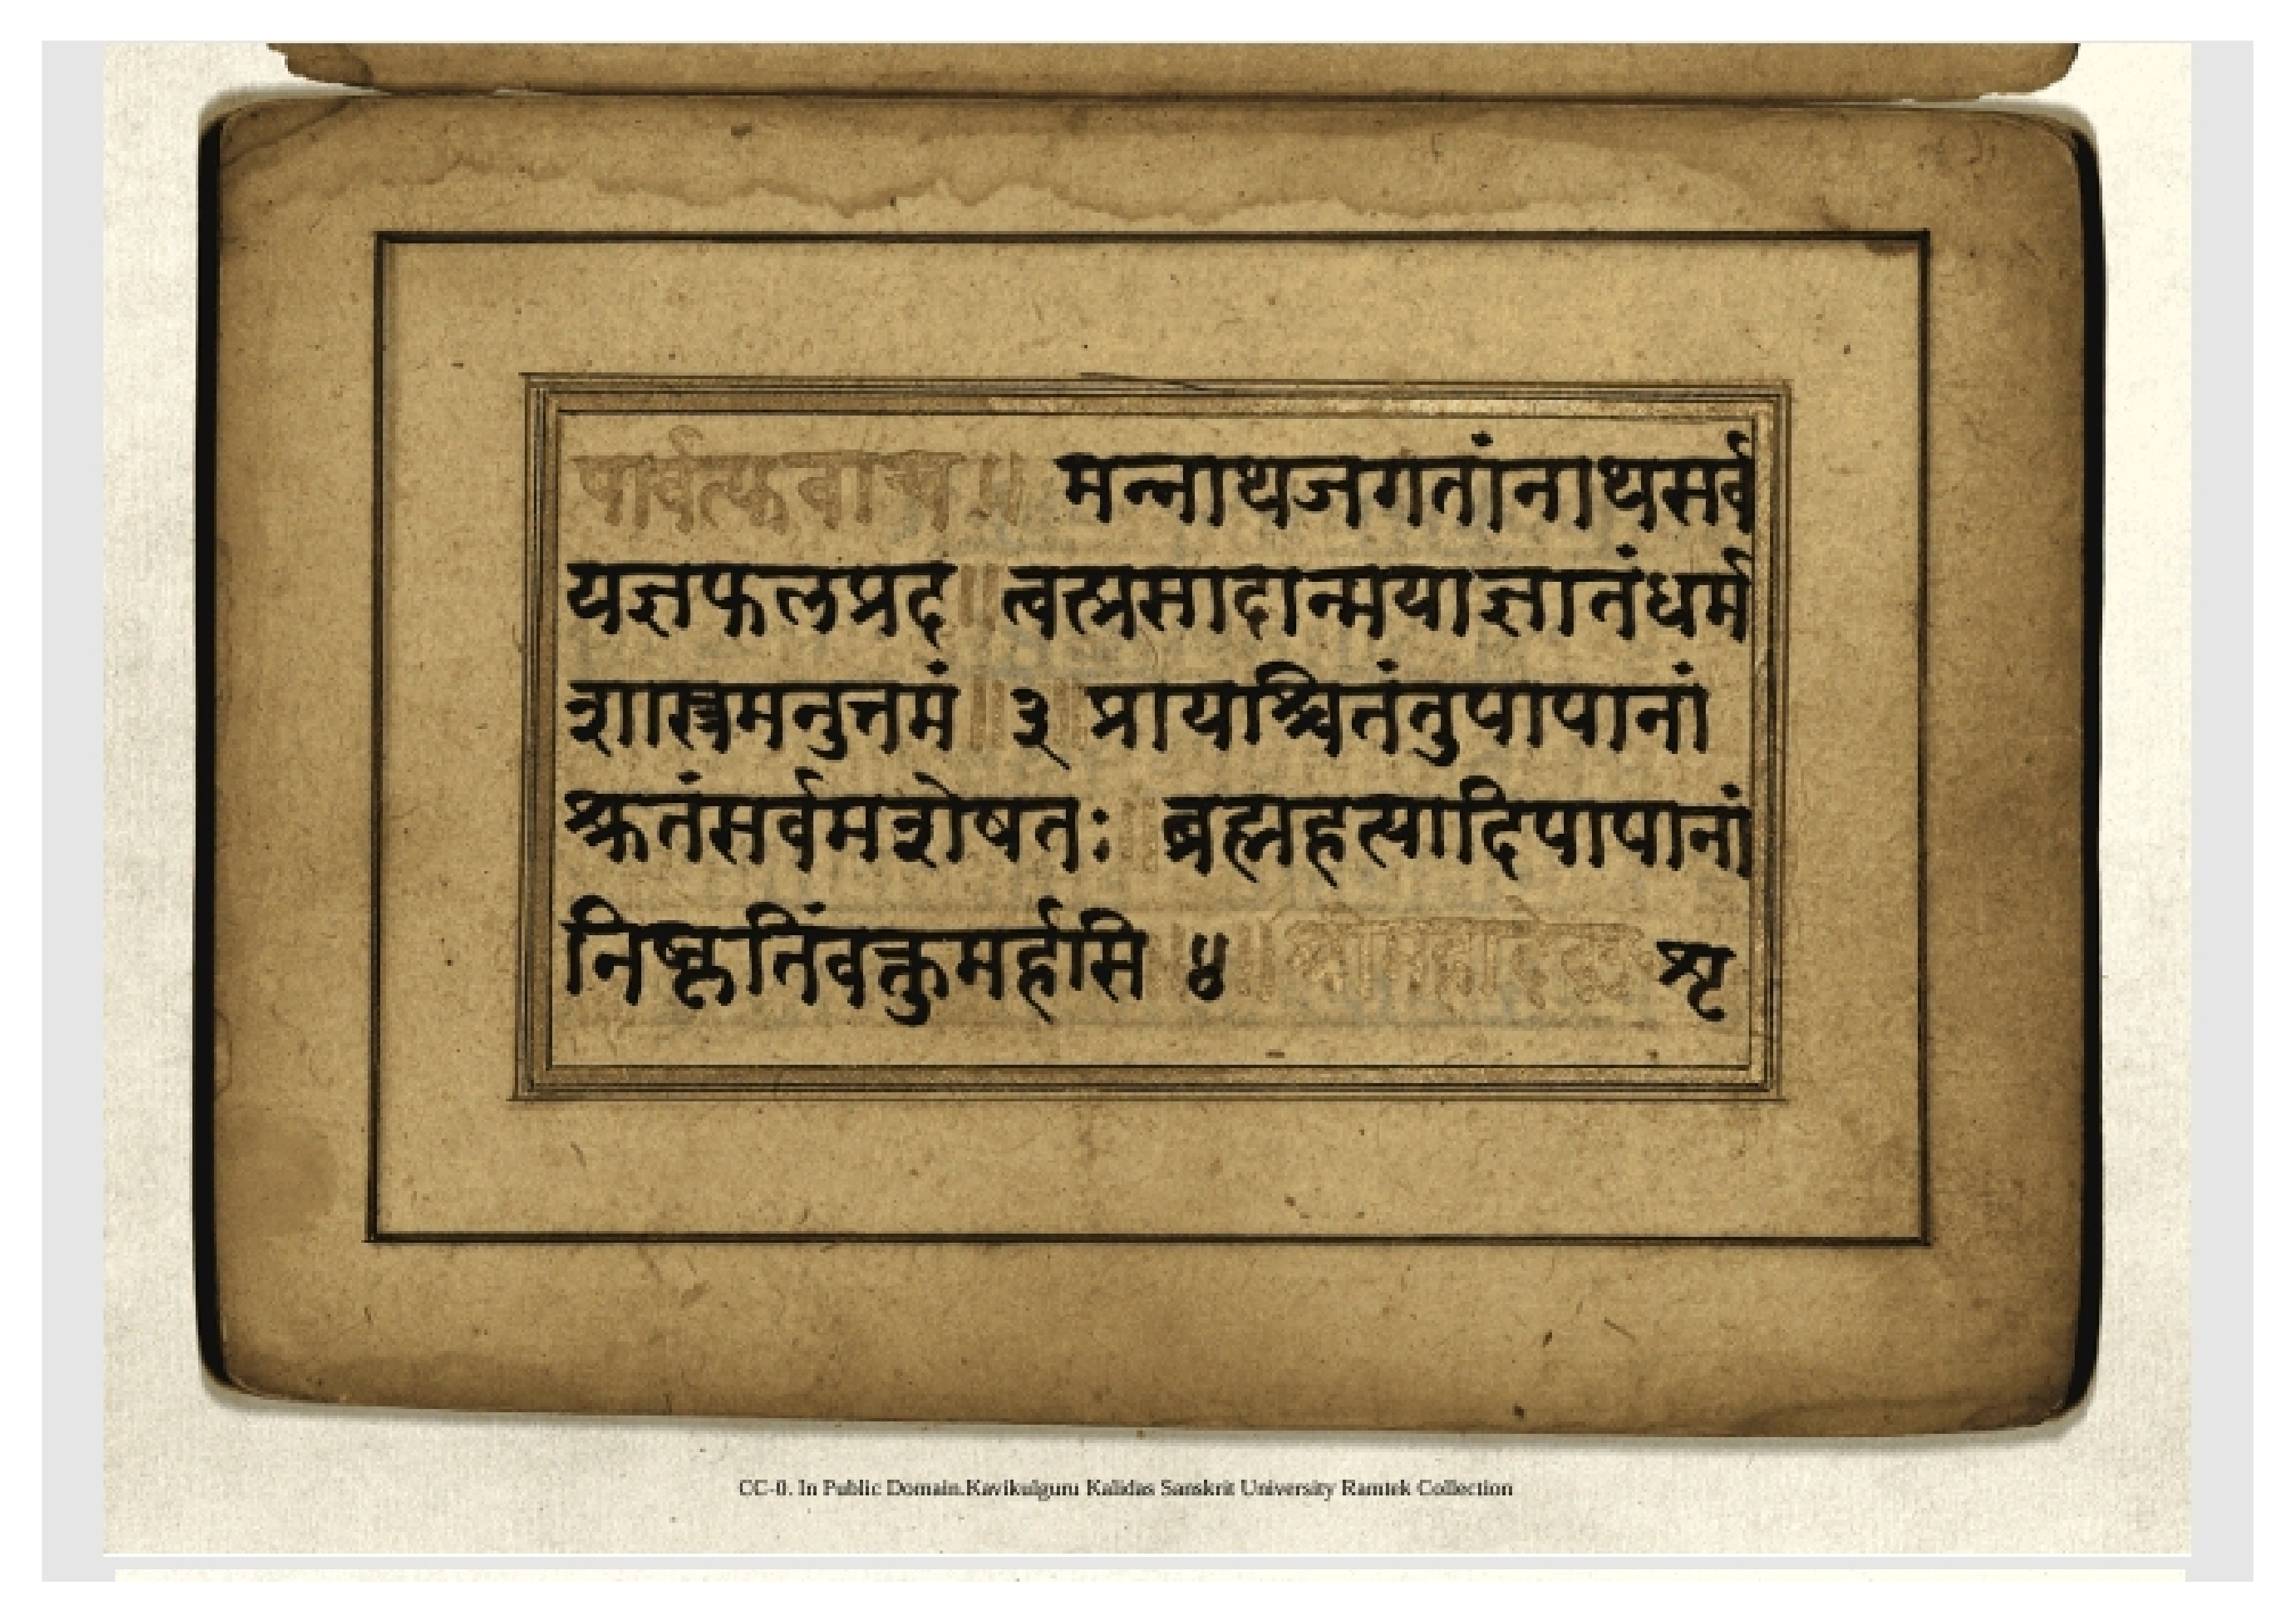 पार्वत्युवाच ॥ मन्नाथजगतांनाथसर्व
यज्ञफलप्रद ॥ त्वत्प्रसादान्मयाज्ञातंधर्म
शास्त्रमनुत्तमं ॥ ३ ॥ प्रायश्चित्तंतुपापानां
श्रुतंसर्वमशेषतः ॥ ब्रह्महत्यादिपापानां
निष्कृतिंवक्तुमर्हसि ॥ ४ ॥ श्रीमहादेव उ॰ शृ
CC-0. In Public Domain.Kavikulguru Kalidas Sanskrit University Ramtek Collection